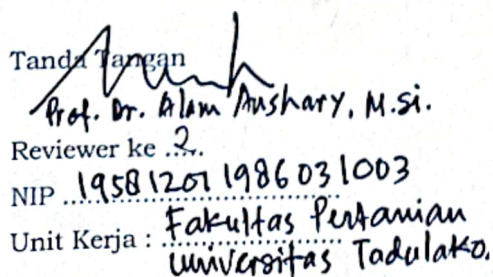 Tanda Tangan
Prof. Dr. Alam Anshary, M.Si.
Reviewer ke 2
NIP 19581201 198603 1003
Unit Kerja : Fakultas Pertanian
Universitas Tadulako.